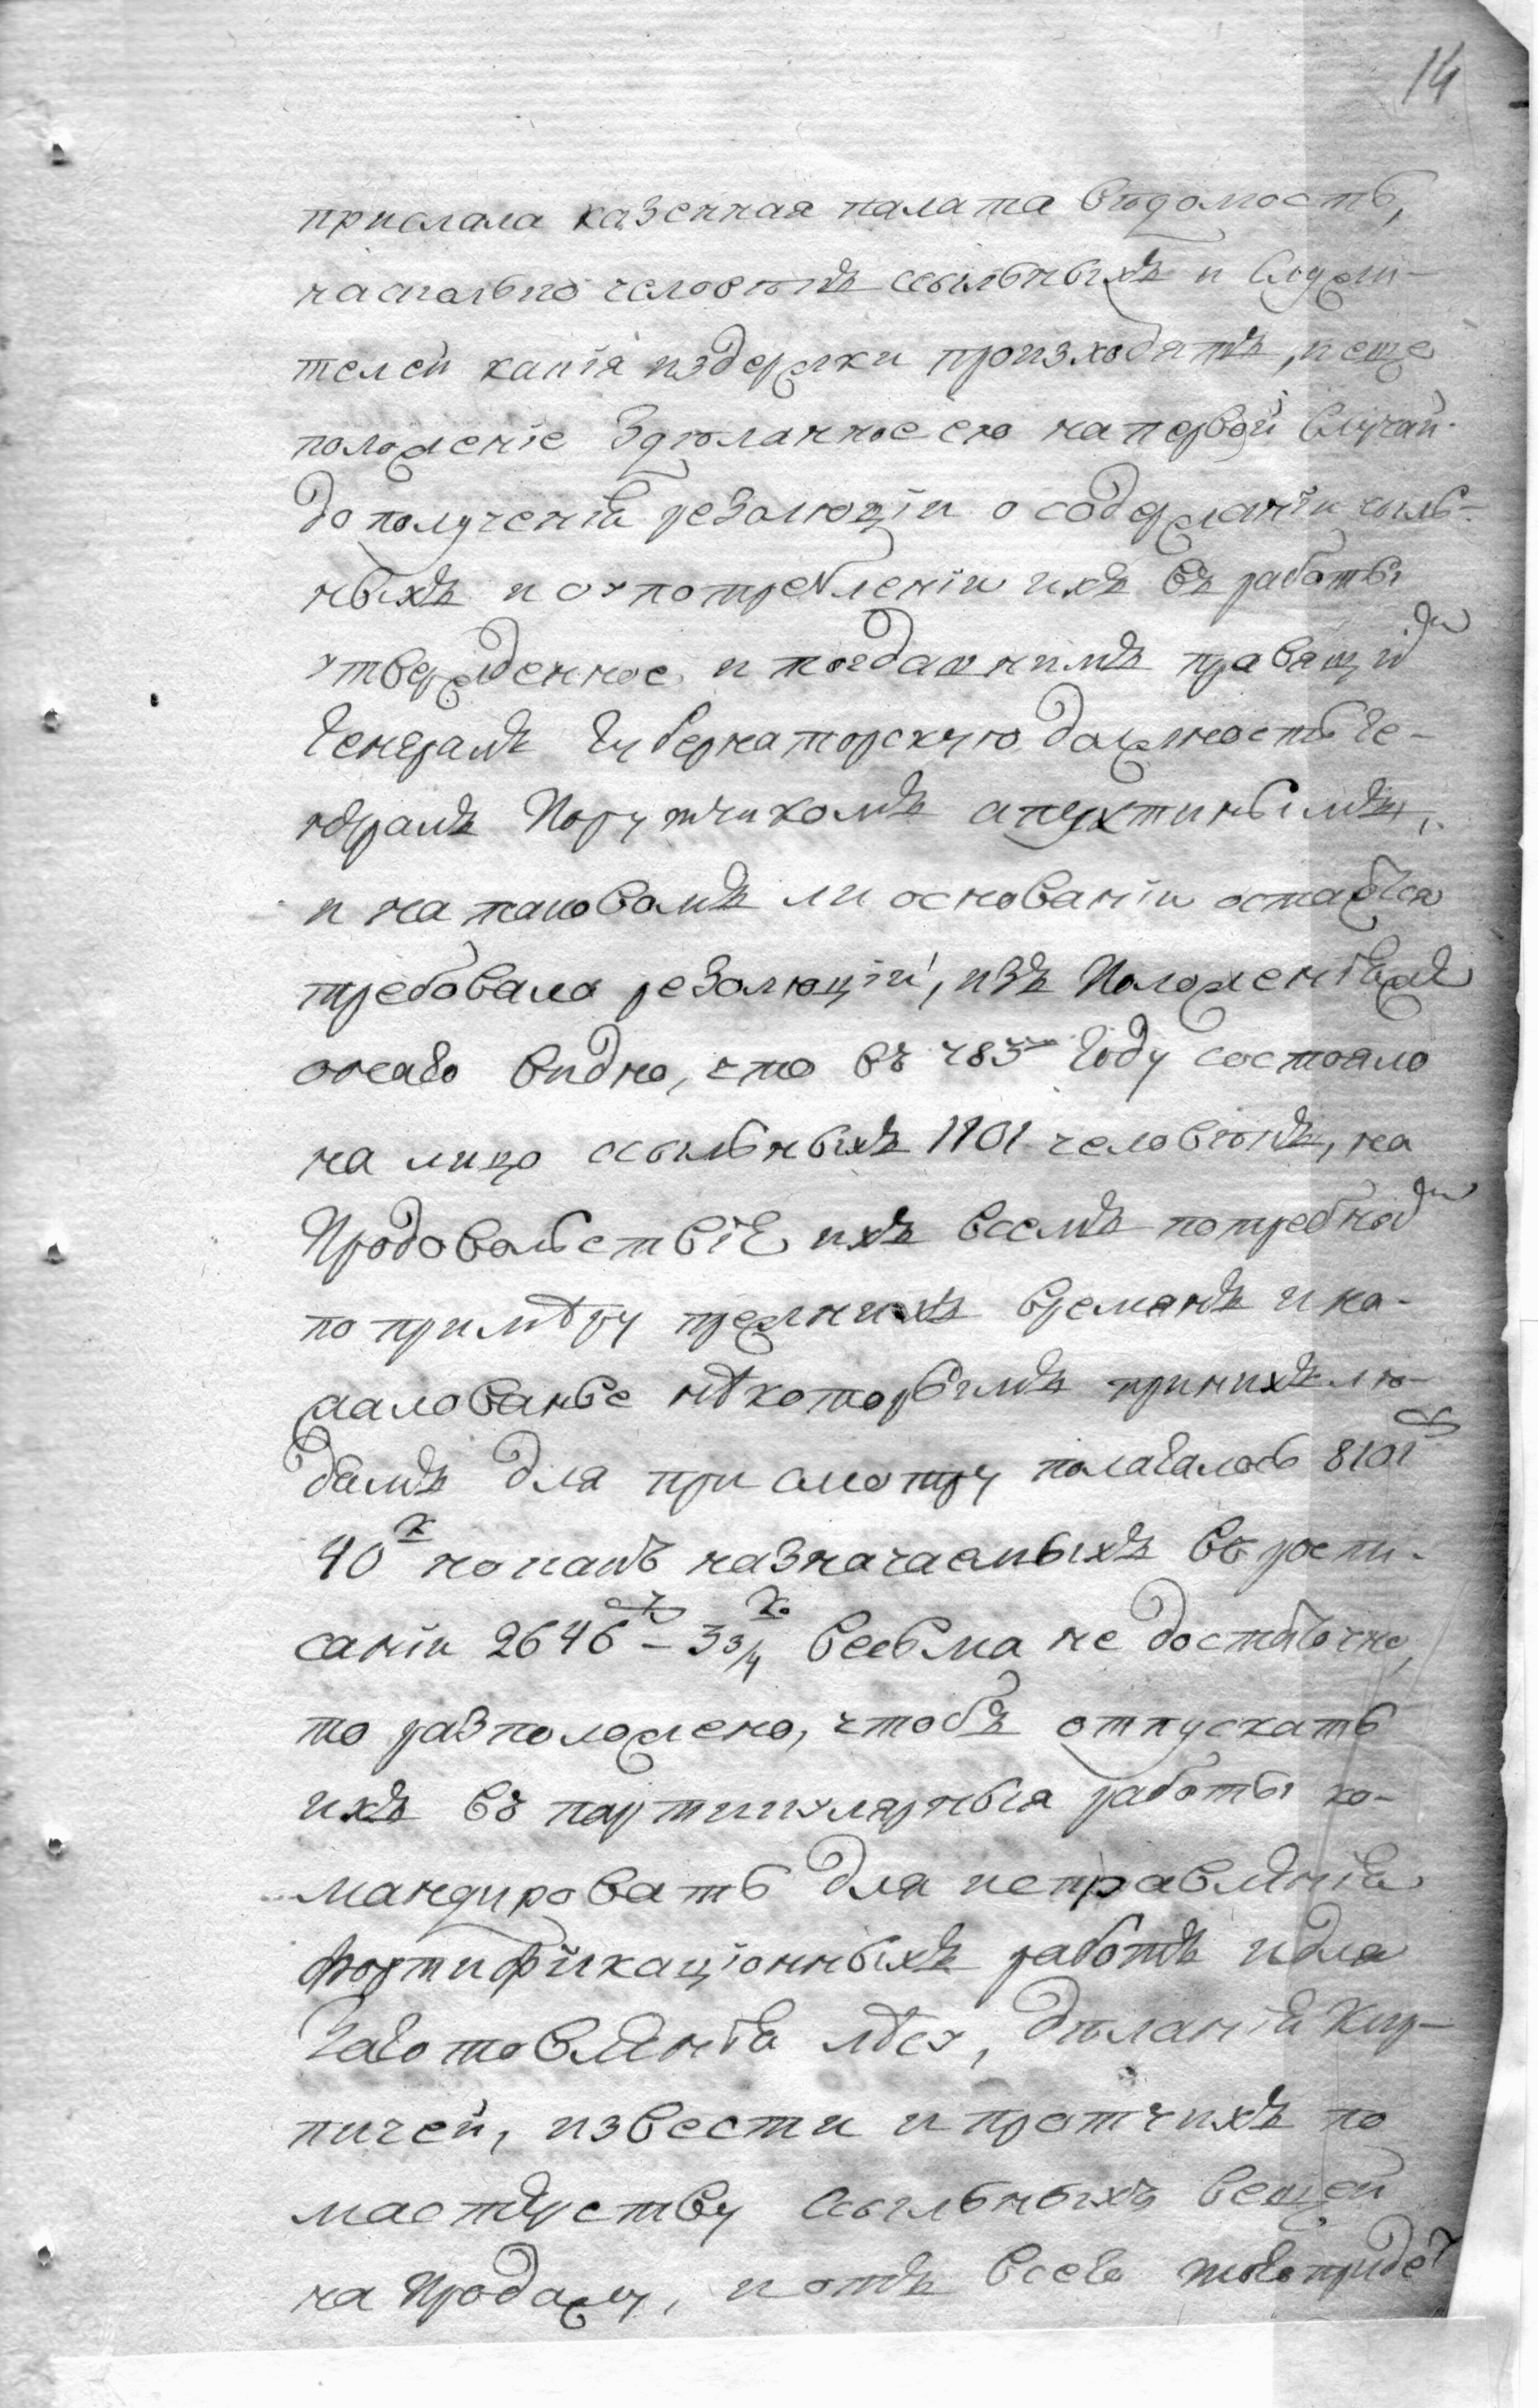 14
прислала казенная палата ведомость,
насколько человекъ ссыльныхъ и служи-
телей какiя издержки произходятъ, и еще
положенiе Зделанное ею на первой Случай
до полученiя резолюцiи о содержанiи ссыль-
ныхъ и о употребленiи ихъ въ работы
утвержденное и тогдашнимъ правящи
Генералъ Губернаторскую должность Ге-
нералъ Порутчикомъ апухтинымъ,
и на таковомъ ли основанiи остатся
требовала резолюцiи, изъ Положенiяже
онаго видно, что въ 783м Году состояло
на лицо ссыльныхъ 1101 человекъ, на
Продовольствiе ихъ всемъ потребнод
по примѣру прежнихъ времянъ и на
жалованье нѣкоторымъ принихъ лю-
дямъ для присмотру полагалось 8101 р
40 к но какъ назначаемыхъ въ роспи-
санiи 2646 р – 3 3/4 к весьма не достаточно,
то разположено, чтобъ отпускать
ихъ въ партикулярныя работы ко-
мандировать для исправлѣнiя
фортификацiонныхъ работъ и для
Заготовлѣнiя лѣсу, дѣланiя Кир-
пичей, извести и протчихъ по
мастерству ссыльныхъ вещей
на Продажу, и отъ всего того придет